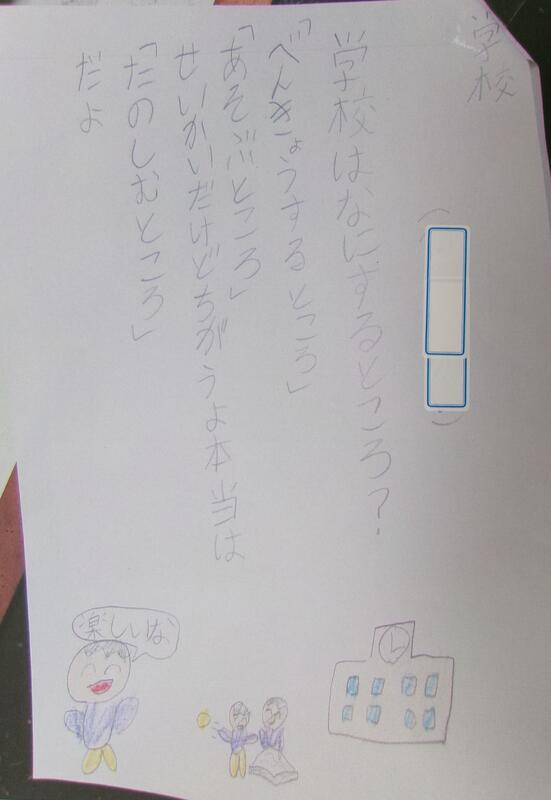 学校
（　）
学校はなにするところ？
「べんきょうするところ」
「あそぶところ」
せいかいだけどちがうよ本当は
「たのしむところ」
だよ
楽しいな